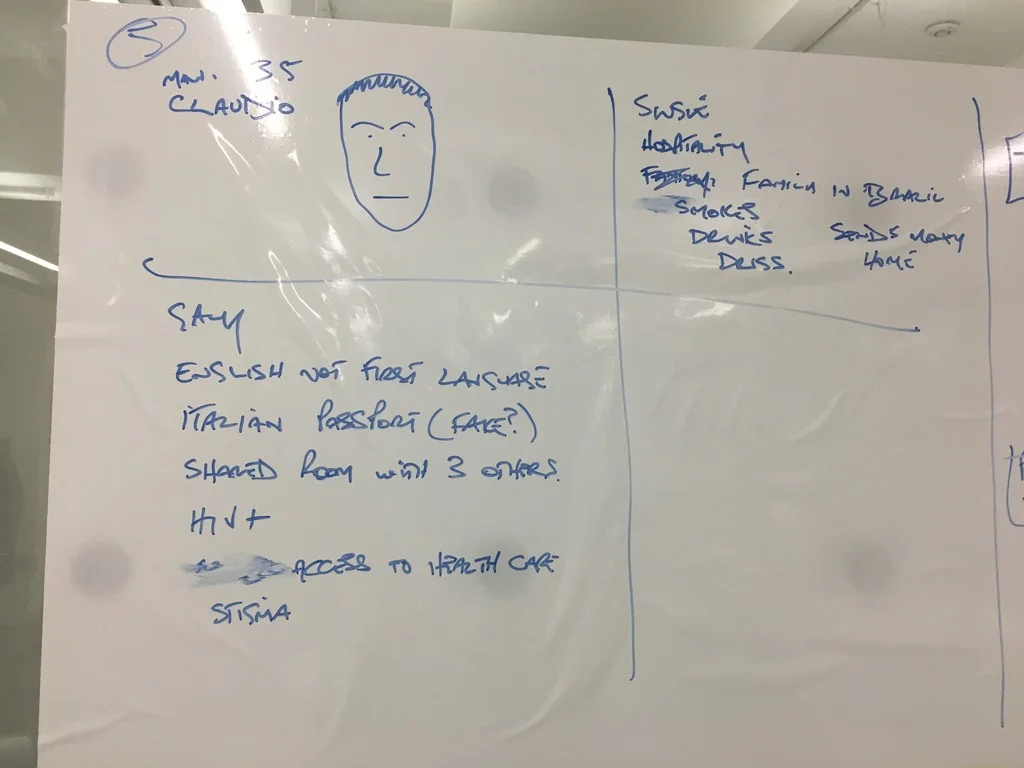 5
MAN. 35
CLAUDIO
GAY
ENGLISH NOT FIRST LANGUAGE
ITALIAN PASSPORT (FAKE?)
SHARED ROOM WITH 3 OTHERS.
HIV+
ACCESS TO HEALTH CARE
STIGMA
HOSPITALITY
FAMILY IN BRAZIL
SMOKES
DRINKS SENDS MONEY
DRUGS. HOME